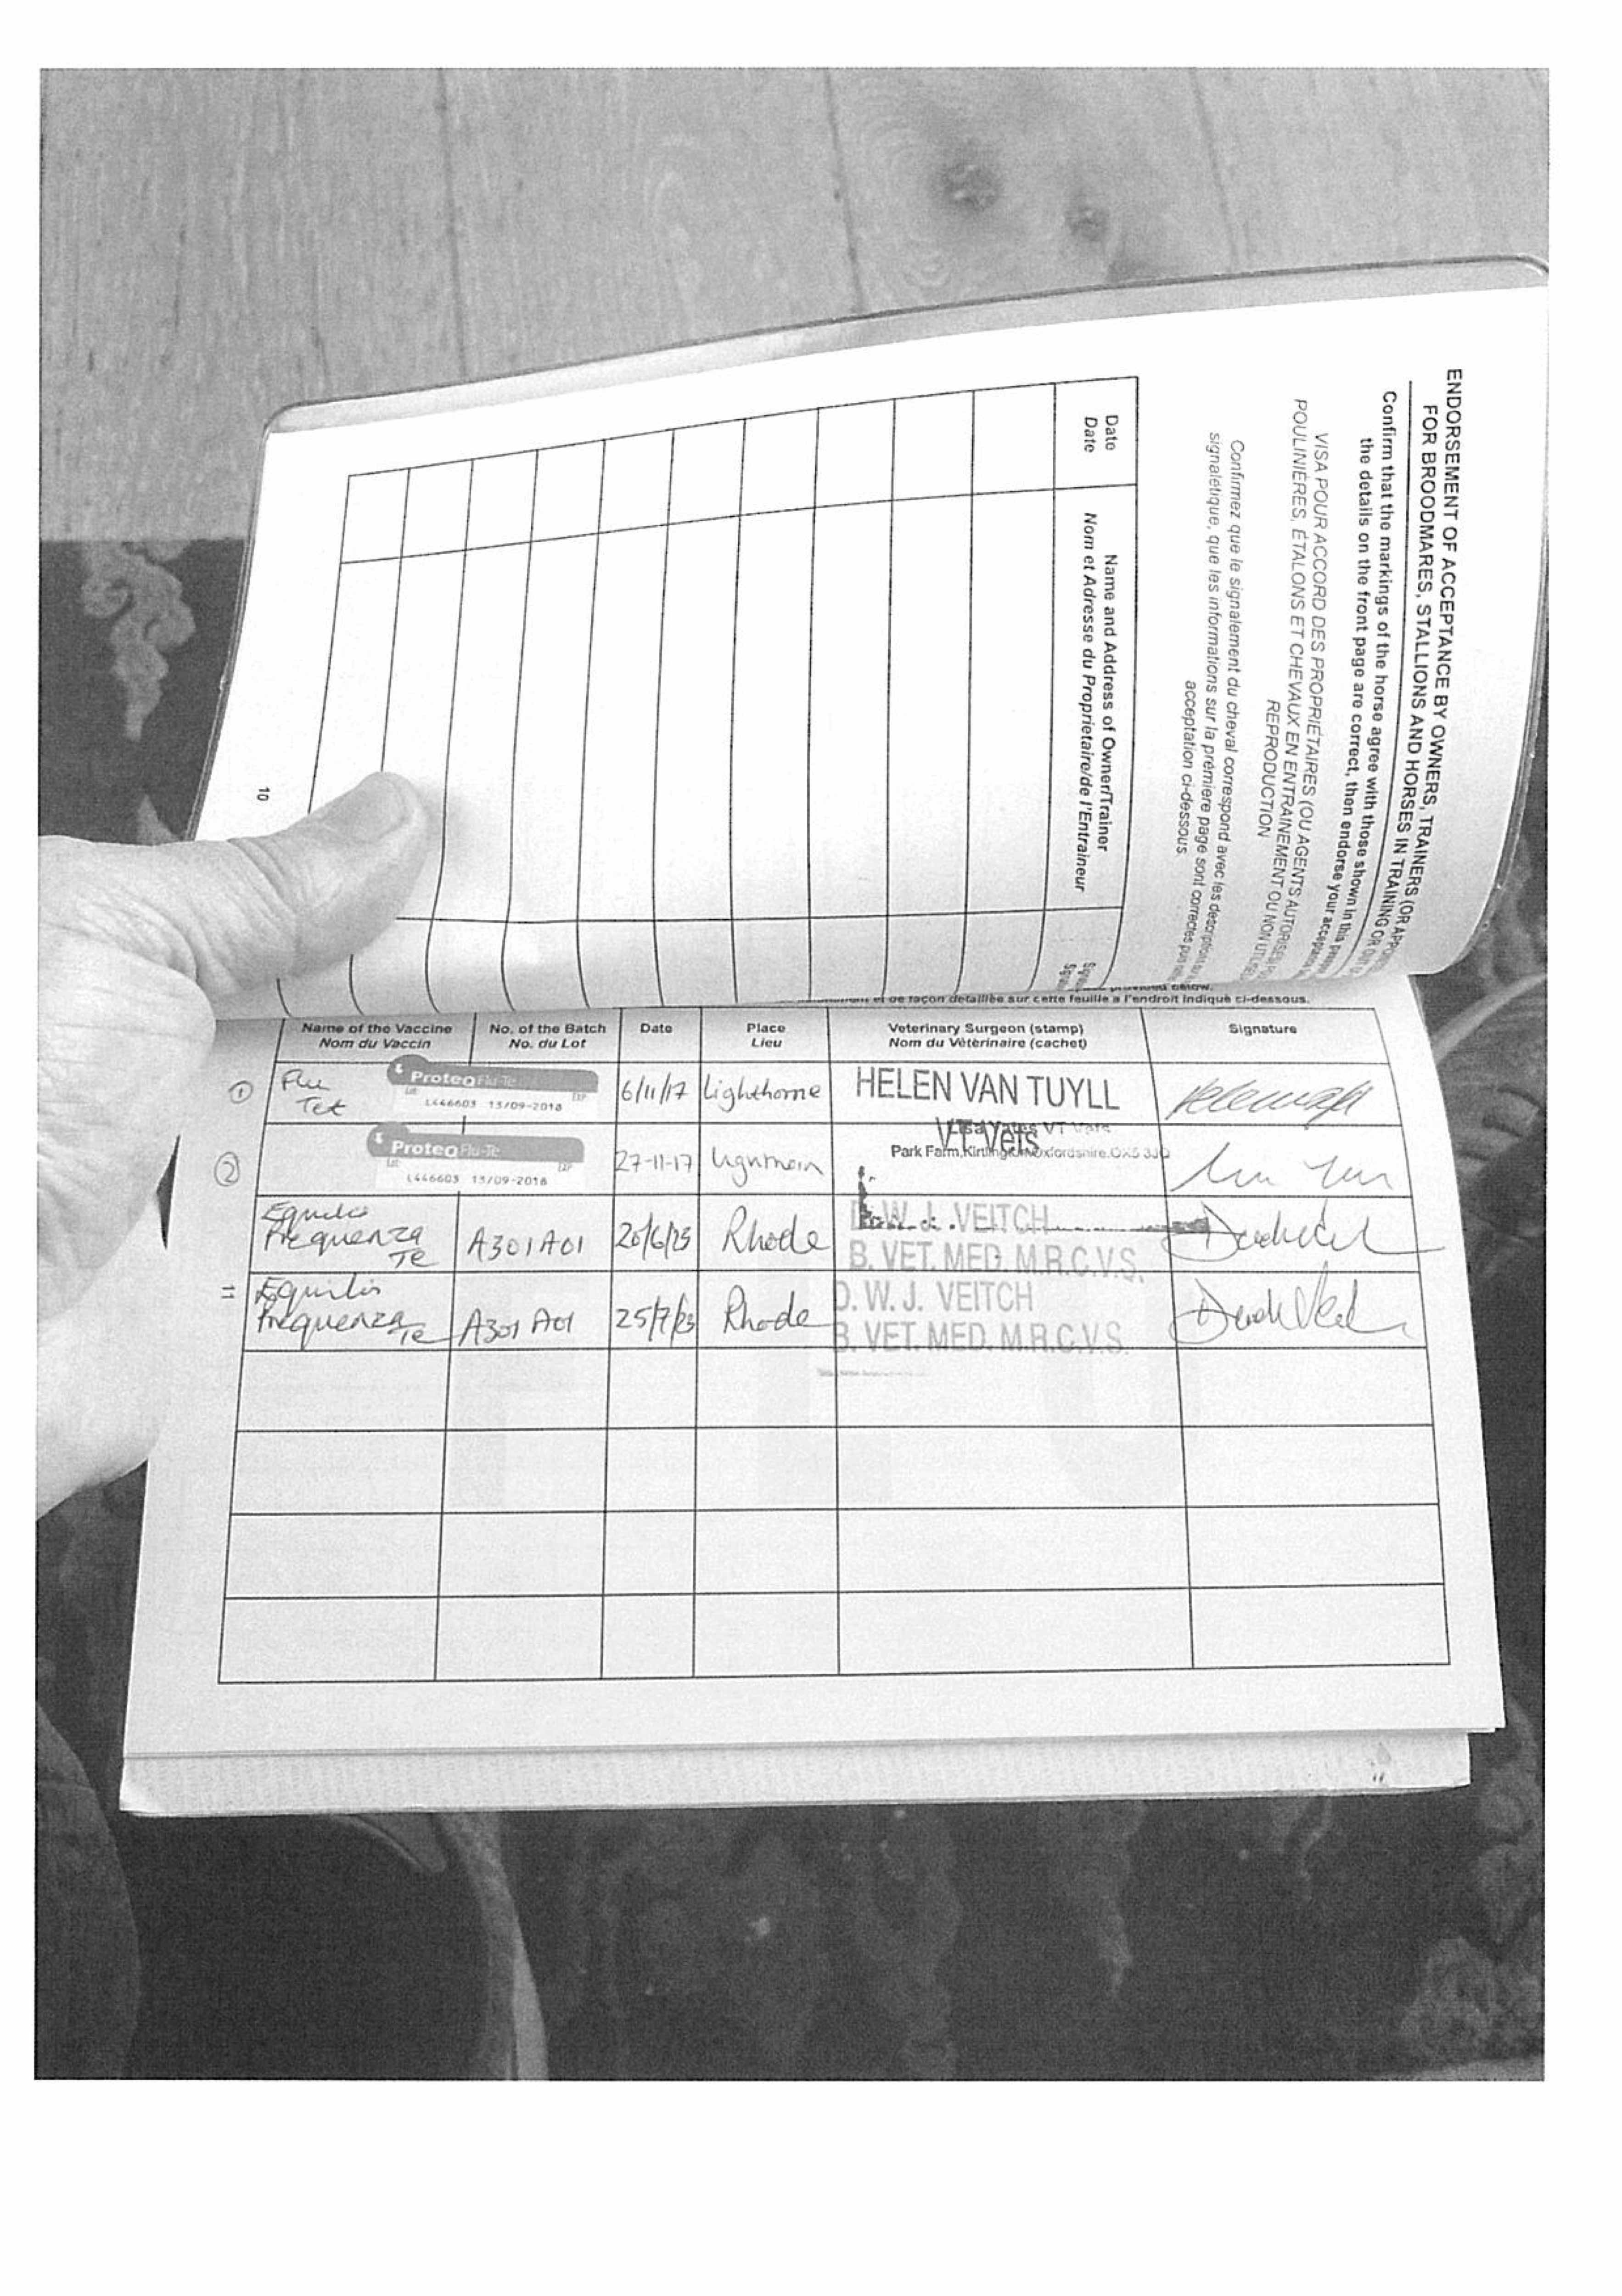 ENDORSEMENT OF ACCEPTANCE BY OWNERS, TRAINERS (OR
FOR BROODMARES, STALLIONS AND HORSES IN TRAINING OR
Confirm that the markings of the horse agree with those shown in this
the details on the front page are correct, then endorse your acceptance
VISA POUR ACCORD DES PROPRIÉTAIRES (OU AGENTS AUTORISÉS)
POULINIÈRES, ÉTALONS ET CHEVAUX EN ENTRAINEMENT OU NON
REPRODUCTION
Confirmez que le signalement du cheval correspond avec les description
signalétique, que les informations sur la première page sont correctes puis
acceptation ci-dessous.
Date
Date
Name and Address of Owner/Trainer
Nom et Adresse du Proprietaire/de l'Entraineur
10
below.
et de façon detaillée sur cette feuille a l'endroit indiqué ci-dessous.
Name of the Vaccine
Nom du Vaccin
No. of the Batch
No. du Lot
Date
Place
Lieu
Veterinary Surgeon (stamp)
Nom du Vétérinaire (cachet)
Signature
1 Flu Tet ProteqFlu-Te Lot EXP L446603 13/09-2018 6/11/17 Lighthorne HELEN VAN TUYLL
VT Vets
2 ProteqFlu-Te Lot EXP L446603 13/09-2018 27-11-17 Lisa Yates VT Vets
Park Farm, Kirtlington Oxfordshire. OX5 3JQ
Equilis Prequenza Te A301A01 20/6/23 Rhode D. W. J. VEITCH
B. VET. MED. M.R.C.V.S.
11
Equilis Prequenza Te A301 A01 25/7/23 Rhode D. W. J. VEITCH
B. VET. MED. M.R.C.V.S.